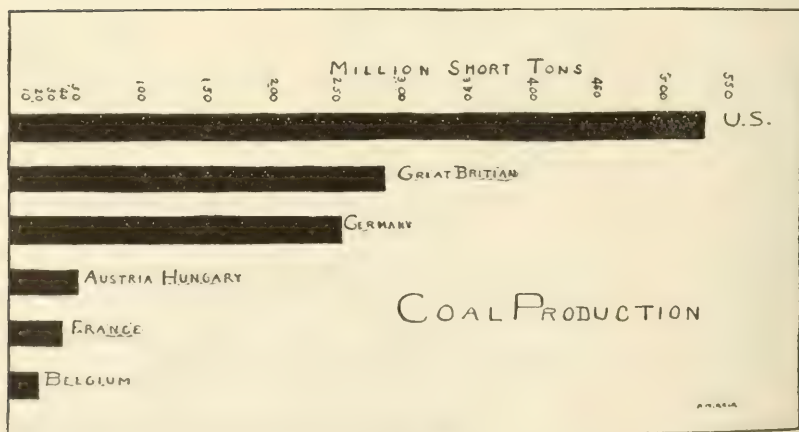 MILLION SHORT TONS
10 20 30 40 50 100 150 200 250 300 350 400 450 500 550
U.S.
GREAT BRITIAN
GERMANY
AUSTRIA HUNGARY
FRANCE
BELGIUM
COAL PRODUCTION